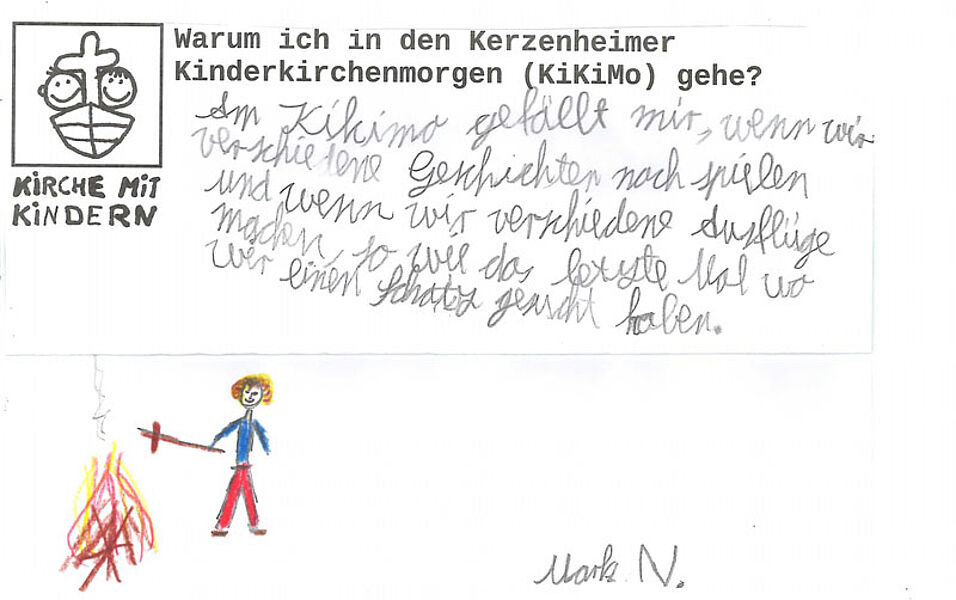 Warum ich in den Kerzenheimer
Kinderkirchenmorgen (KiKiMo) gehe?
KiRCHE MiT
KiNDERN
Am Kikimo gefällt mir, wenn wir
verschiedene Geschichten nach spielen
und wenn wir verschiedene Ausflüge
machen, so wie das letzte Mal wo
wir einen Schatz gesucht haben.
Mark N.